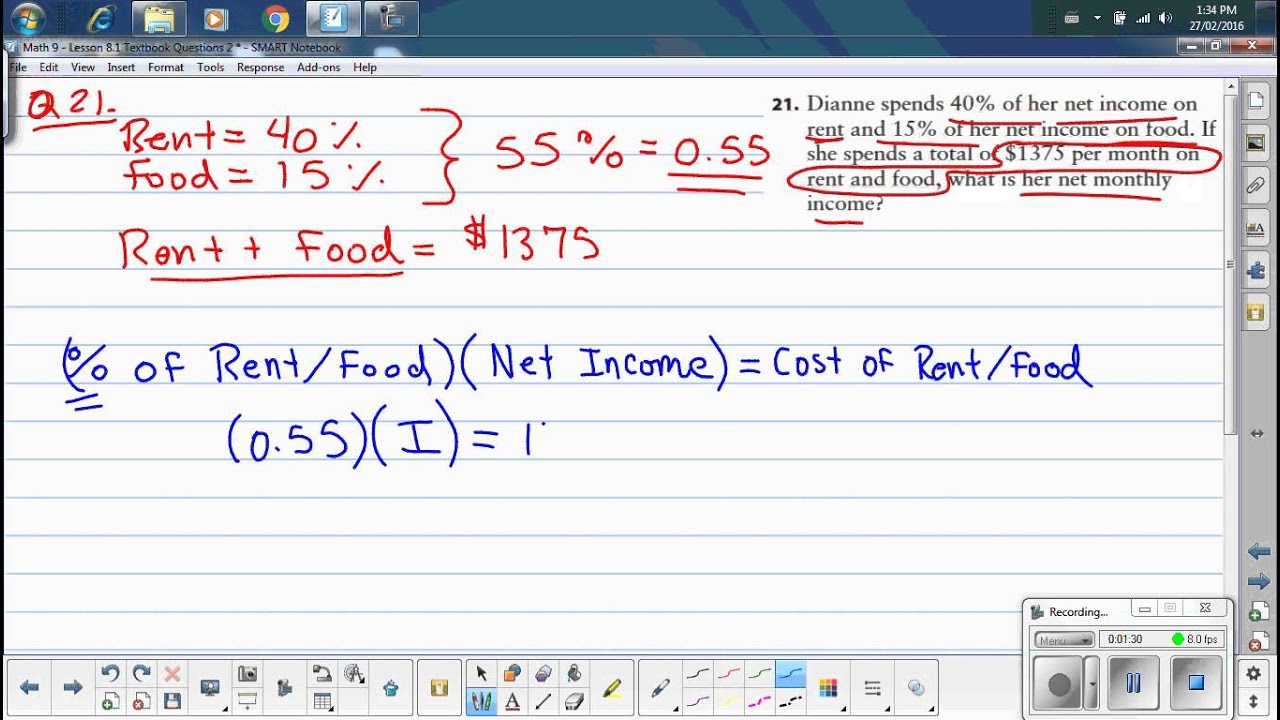 1:34 PM
27/02/2016
Math 9 - Lesson 8.1 Textbook Questions 2 * - SMART Notebook
File Edit View Insert Format Tools Response Add-ons Help
Q 21.
Rent = 40%
Food = 15%
55% = 0.55
Rent + Food = $1375
21. Dianne spends 40% of her net income on
rent and 15% of her net income on food. If
she spends a total of $1375 per month on
rent and food, what is her net monthly
income?
(% of Rent/Food)(Net Income) = Cost of Rent/Food
(0.55)(I) = 1
Recording...
Menu
0:01:30
8.0 fps